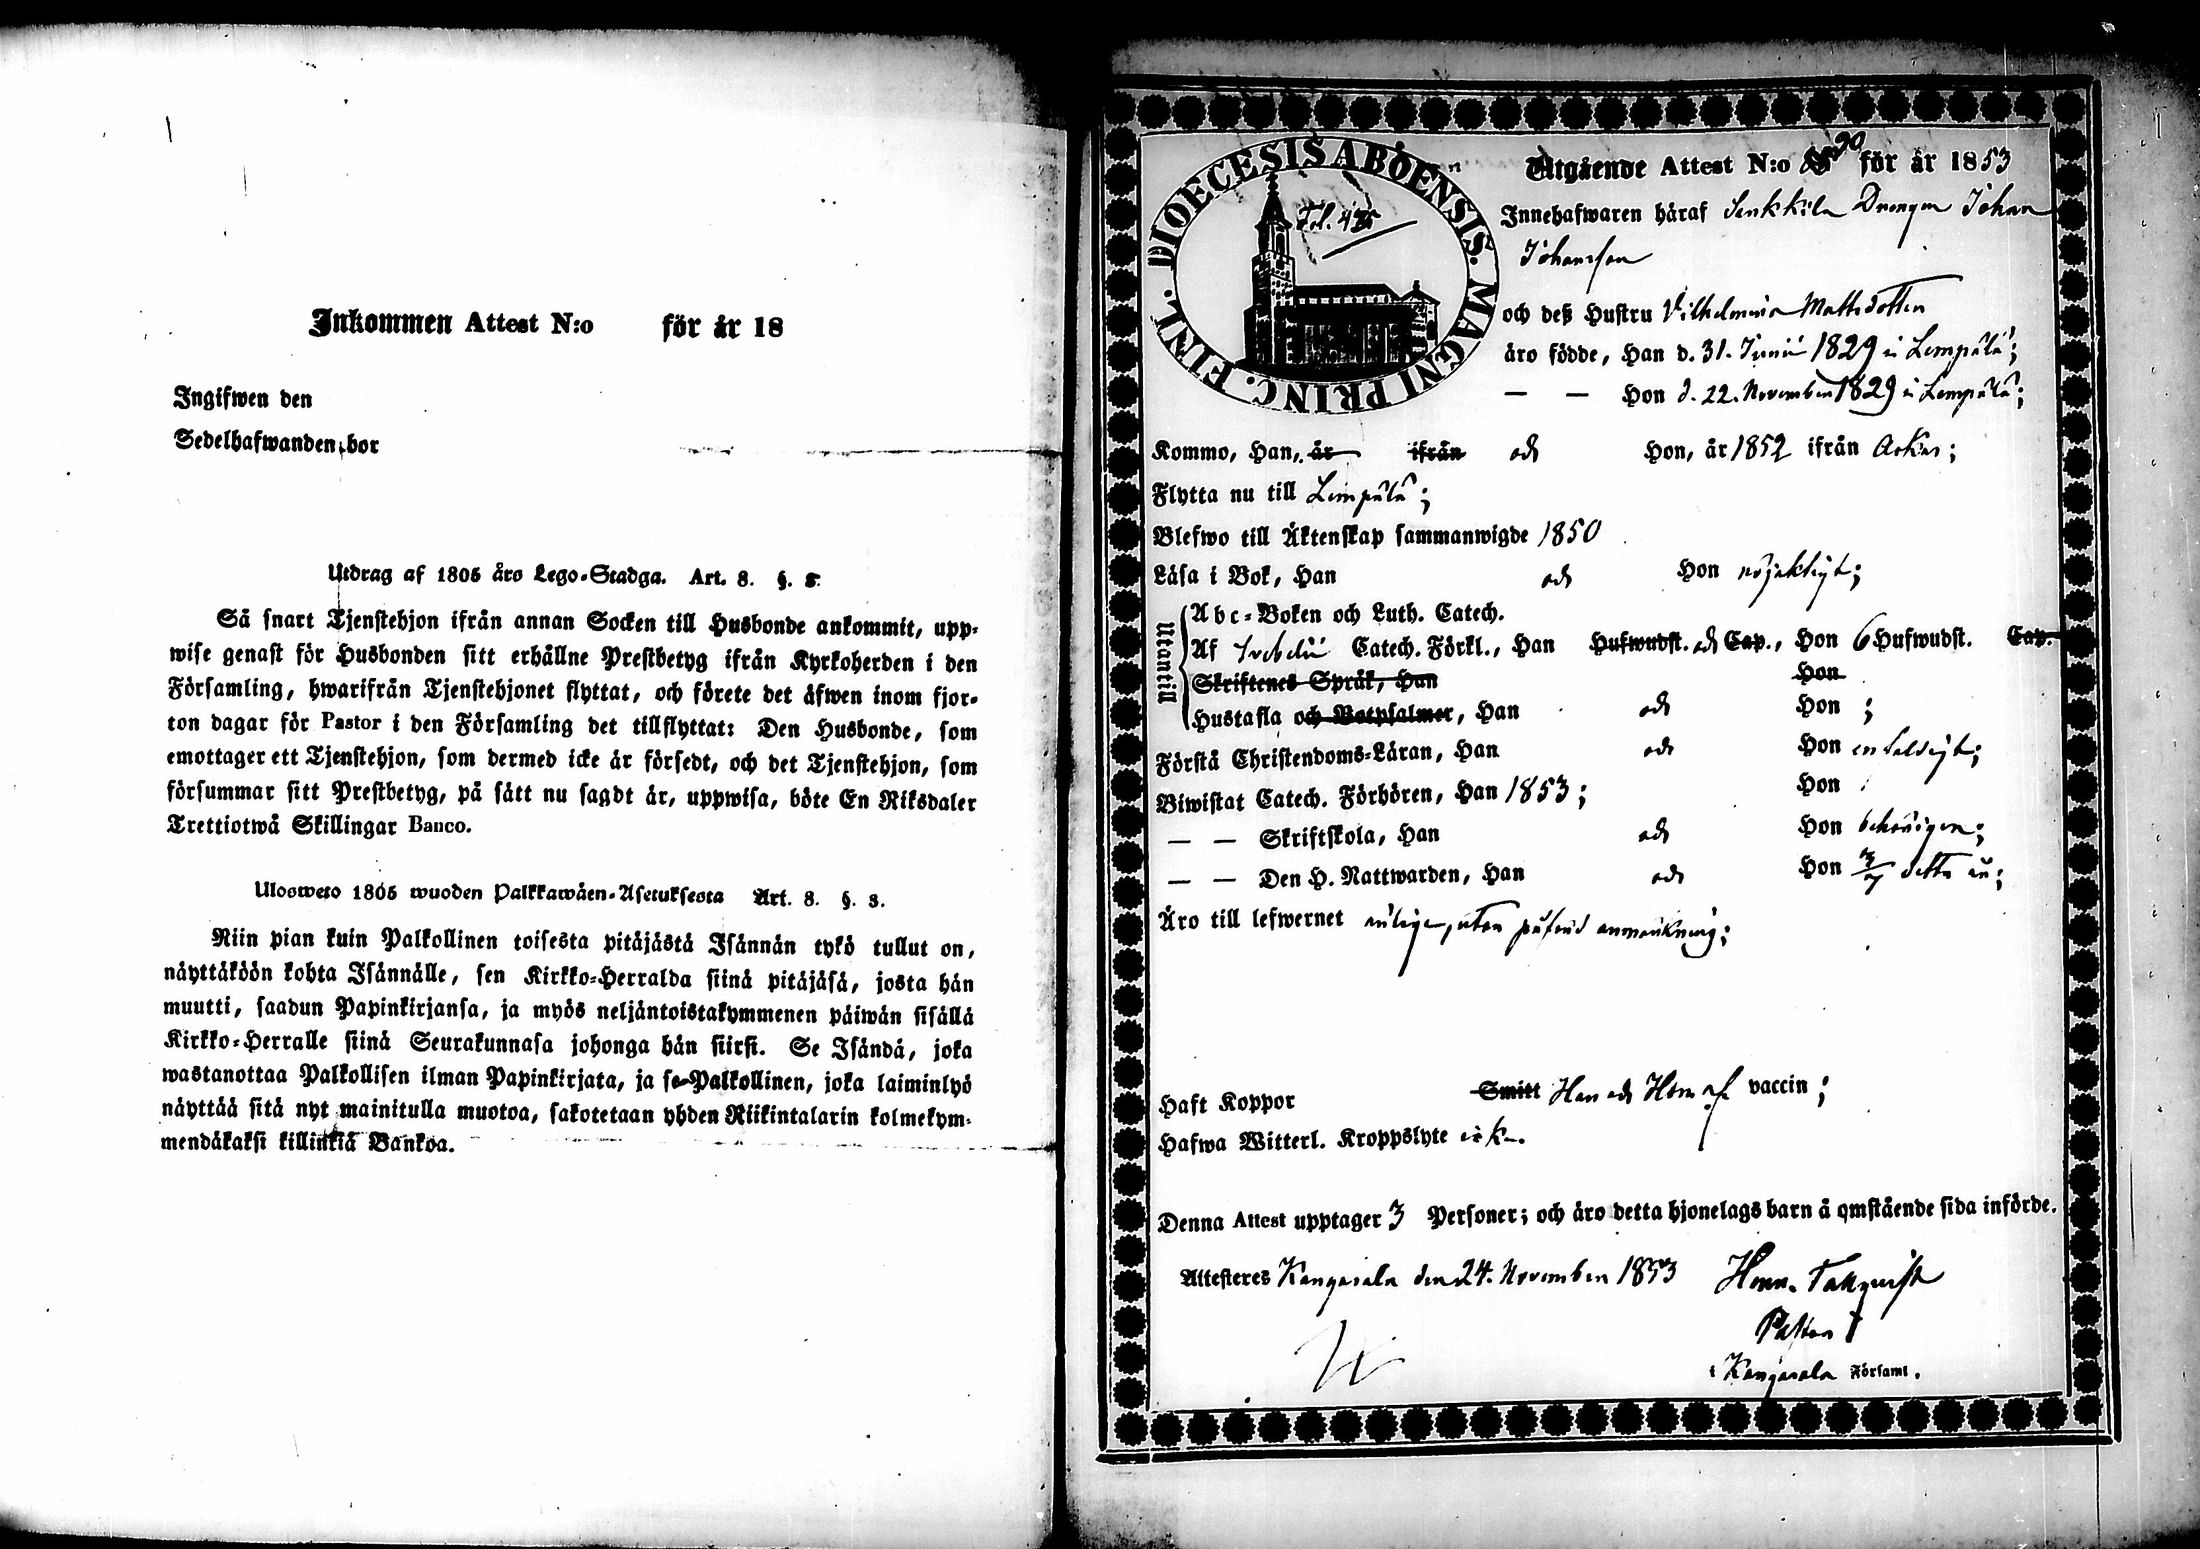 Inkommen Attest N:o för år 18
Ingifwen den
Sedelhafwanden bor
Utdrag af 1805 års Lego-Stadga. Art. 8. §. 8.
Så snart Tjenstehjon ifrån annan Socken till Husbonde ankommit, upp-
wise genast för Husbonden sitt erhållne Prestbetyg ifrån Kyrkoherden i den
Församling, hwarifrån Tjenstehjonet flyttat, och förete det äfwen inom fjor-
ton dagar för Pastor i den Församling det tillflyttat: Den Husbonde, som
emottager ett Tjenstehjon, som dermed icke är försedt, och det Tjenstehjon, som
försummar sitt Prestbetyg, på sätt nu sagdt är, uppwisa, böte En Riksdaler
Trettiotwå Skillingar Banco.
Ulosweto 1805 wuoden Palkkawäen-Asetuksesta Art. 8. §. 8.
Niin pian kuin Palkollinen toisesta pitäjästä Isännän tykö tullut on,
näyttäköön kohta Isännälle, sen Kirkko-Herralda siinä pitäjäsä, josta hän
muutti, saadun Papinkirjansa, ja myös neljäntoistakymmenen päiwän sisällä
Kirkko-Herralle siinä Seurakunnasa johonga hän siirsi. Se Isändä, joka
wastanottaa Palkollisen ilman Papinkirjata, ja se Palkollinen, joka laiminlyö
näyttää sitä nyt mainitulla muotoa, sakotetaan yhden Riikintalarin kolmekym-
mendäkaksi killinkiä Bankoa.
DIOECESIS ABOENSIS. MAGNI PRINC. FINL.
Fol. 435
Utgående Attest N:o 90 för år 1853
Innehafwaren häraf Senkkila Drengen Johan
Johansson
och deß Hustru Vilhelmina Mattsdotter
äro födde, Han d. 31. Junii 1829 i Lempälä;
— — Hon d. 22. November 1829 i Lempälä;
Kommo, Han, år ifrån och Hon, år 1852 ifrån Ackas;
Flytta nu till Lempälä;
Blefwo till Äktenskap sammanwigde 1850
Läsa i Bok, Han och Hon nöjaktigt;
Utantill
Abc-Boken och Luth. Catech.
Af Svebelii Catech. Förkl., Han Hufwudst. och Cap., Hon 6 Hufwudst. Cap.
Skriftenes Språk, Han Hon
Hustafla och Botpsalmer, Han och Hon ;
Förstå Christendoms-Läran, Han och Hon enfaldigt;
Biwistat Catech. Förhören, Han 1853; Hon
— — Skriftskola, Han och Hon behörigen;
— — Den H. Nattwarden, Han och Hon 3/7 detta år;
Äro till lefwernet ärlige, utan påförd anmärkning;
Haft Koppor Smitt Han och Hon af vaccin;
Hafwa Witterl. Kroppslyte icke.
Denna Attest upptager 3 Personer; och äro detta hjonelags barn å omstående sida införde.
Attesteres Kangasala den 24. November 1853 Henr. Tallqvist
Pastor
i Kangasala Församl.